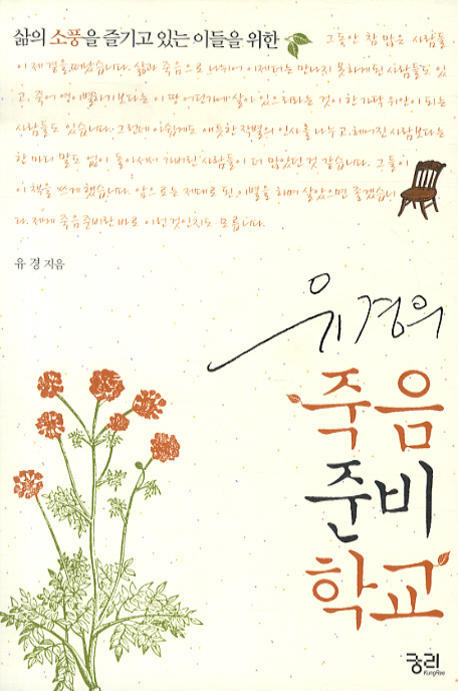 삶의 소풍을 즐기고 있는 이들을 위한
그동안 참 많은 사람들
이 제 곁을 떠났습니다. 삶과 죽음으로 나뉘어 이제 더는 만나지 못하게 된 사람들도 있
고, 죽어 영이별하기보다는 이 땅 어딘가에 살아 있으리라는 것이 한 가닥 위안이 되는
사람들도 있습니다. 그런데 아쉽게도 애틋한 작별의 인사를 나누고 헤어진 사람보다는
한 마디 말도 없이 돌아서서 가버린 사람들이 더 많았던 것 같습니다. 그들이
이 책을 쓰게 했습니다. 앞으로는 제대로 된 이별을 하며 살았으면 좋겠습니
다. 제게 죽음준비란 바로 이런 것인지도 모릅니다.
유 경 지음
유경의
죽음
준비
학교
궁리
KungRee